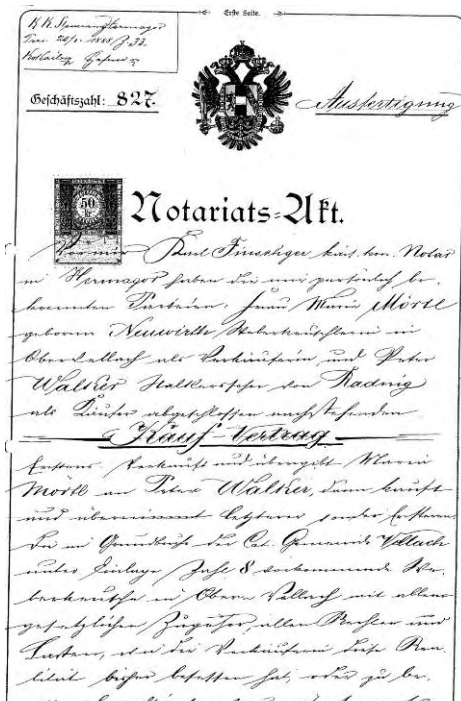 Erste Seite.
K. K. Hermagor
1888
Geschäftszahl: 827.
Ausfertigung
50
Notariats-Akt.
Vor mir Karl kais. kön. Notar
in Hermagor haben die mir persönlich be-
kannten Parteien: Frau Maria Mörtl
geborene Neuwirth Weberkeuschlerin in
Obervellach als Verkäuferin, und Peter
Walker von Radnig
als Käufer abgeschlossen nachstehenden
Kauf-Vertrag
Erstens. Verkauft und übergibt Maria
Mörtl an Peter Walker, dann kauft
und übernimmt letzterer von der Ersteren
die im Grundbuche der Cat. Gemeinde Vellach
unter Einlage Zahl 8 vorkommende We-
berkeusche in Ober-Vellach mit allem
gesetzlichen Zugehör, allen Rechten und
Lasten, wie die Verkäuferin diese Rea-
lität bisher besessen hat, oder zu be-